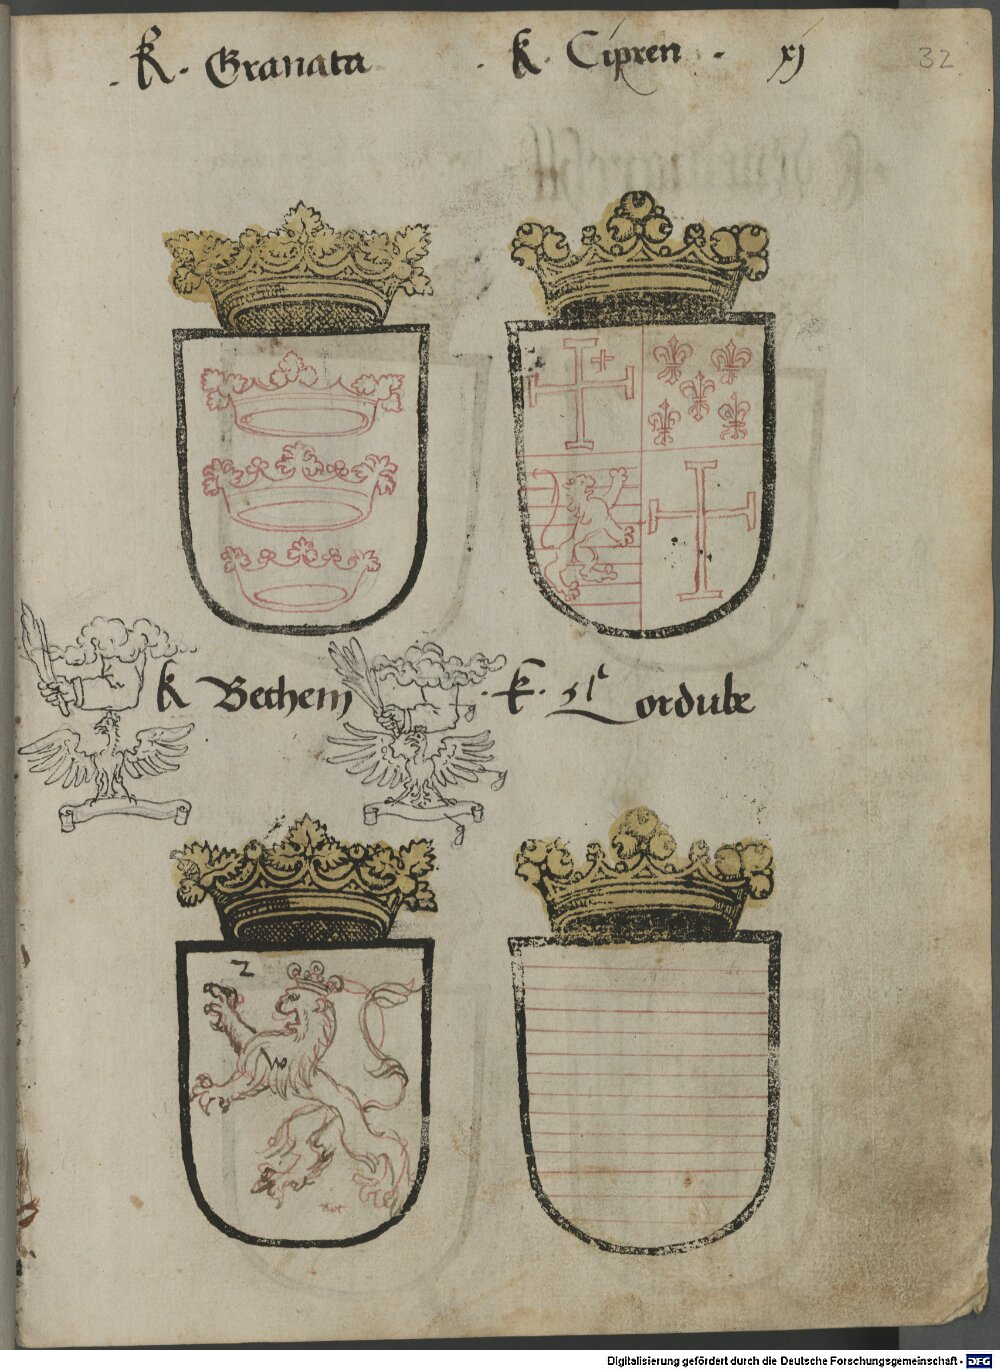 . K . Granata . k . Cipren . xj 32
k Bechem . k . Cordube
z
w
rot
g
g
g
Digitalisierung gefördert durch die Deutsche Forschungsgemeinschaft - DFG